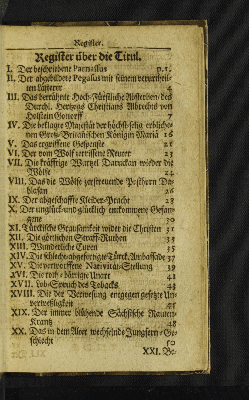 Register.
Register über die Titul.
I. Der beschriebene Parnassus p. 1.
II. Der abgebildete Pegasus mit seinem
ten Lästerer 4
III. Das betrübnte Hoch-Fürstliche Absterben des
Durchl. Hertzogs Christians Albrechts von
Holstein Gottorff 7
IV. Die beklagte Majestät der höchstselig erblichenen
Groß-Britannischen Königin Maria 16
V. Das ergriffene Gespenste 21
VI. Der vom Wolf zerrissene Reuter 23
VII. Die kräfftige Wurtzel wieder die
Wölfe 24
VIII. Das die Wölfe zerstreuende Posthorn
blasen 26
IX. Der abgeschaffte Kleider-Pracht 28
X. Der unglück- und glücklich entkommene Gefangene
30
XI. Türckische Grausamkeit wider die Christen 31
XII. Die göttlichen Straff-Ruthen 34
XIII. Wunderliche Curen 35
XIV. Die schlecht-abgefertigte Türck. Ambassade 37
XV. Die verworffene Nativität-Stellung 39
XVI. Die roth-bärtige Untreu 41
XVII. Lob-Spruch des Tobacks 44
XVIII. Die der Verwesung entgegen gesetzte Unverweßligkeit
45
XIX. Der immer blühende Sächsische Rauten-
Krantz 48
XX. Das in dem Alter wechselnde Jungfern-Geschlecht
50
XXI. Be-